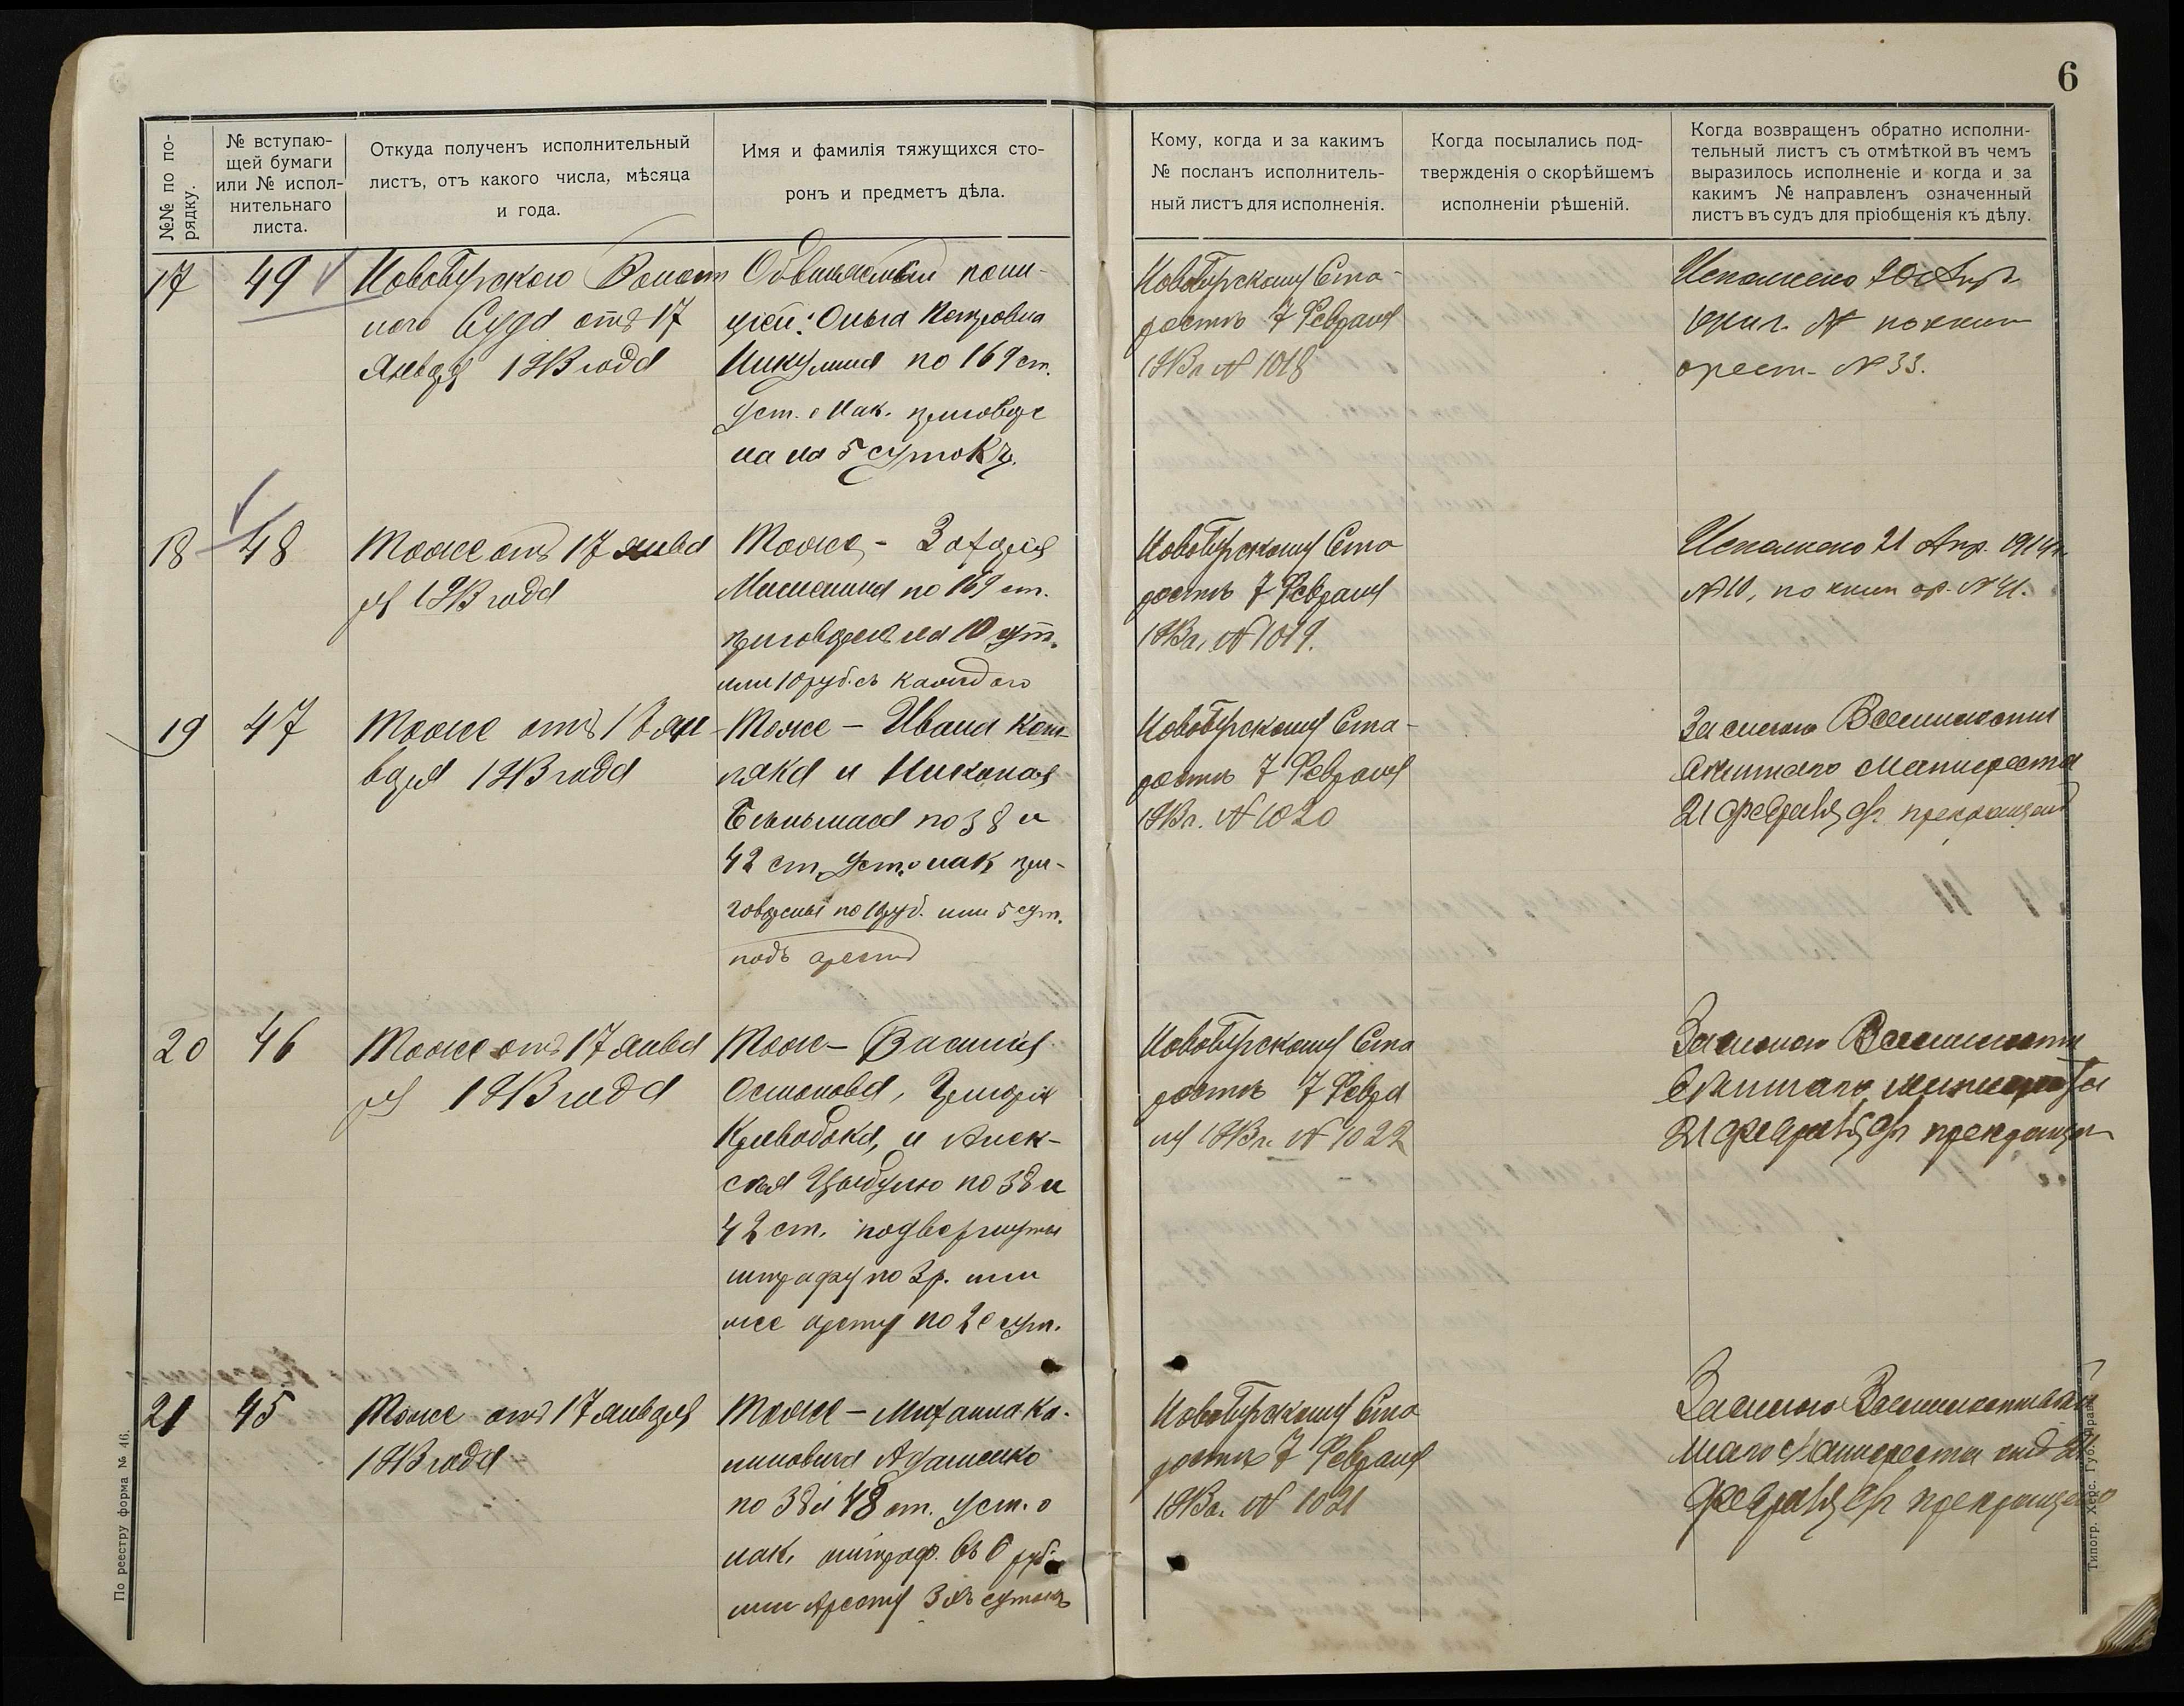 6
№№ по по-
рядку.
№ вступаю-
щей бумаги
или № испол-
нительнаго
листа.
Откуда полученъ исполнительный
листъ, отъ какого числа, мѣсяца
и года.
Имя и фамилія тяжущихся сто-
ронъ и предметъ дѣла.
Кому, когда и за какимъ
№ посланъ исполнитель-
ный листъ для исполненія.
Когда посылались под-
твержденія о скорѣйшемъ
исполненіи рѣшеній.
Когда возвращенъ обратно исполни-
тельный листъ съ отмѣткой въ чемъ
выразилось исполненіе и когда и за
какимъ № направленъ означенный
листъ въ судъ для пріобщенія къ дѣлу.
17
49
Новобугского Волост
ного Суда отъ 17
Января 1913 года
Обвиняемый
Ольга Петровна
Никулина по 169 ст.
Уст. о Нак. приговоре
на на 5 сутокъ.
Новобугскому Ста-
ростѣ 7 Февраля
1913 г. № 1018
Исполнено 20 Апр.
арест. № 33.
18
48
Тоже отъ 17 янва
ря 1913 года
Тоже - Захарія
по 169 ст.
приговоренъ на 10 сут.
или 10 руб. съ каждого
Новобугскому Ста
ростѣ 7 Февраля
1913 г. № 1019.
Исполнено 21 Апр. 1914 г.
№ 10, по книг ар. № 41.
19
47
Тоже отъ 18 ян
варя 1913 года
Тоже - Ивана Кол-
пака и Николая
по 38 и
42 ст. Уст. о нак при-
говорены по руб. или 5 сут.
подъ арестъ
Новобугскому Ста-
ростѣ 7 Февраля
1913 г. № 1020
За силою Всемилости
вѣйшаго Манифеста
21 февраля прекращенъ
20
46
Тоже отъ 17 янва
ря 1913 года
Тоже - Василія
Остапова, Григорія
Кривобока, и Алек-
сѣя Цыбулю по 38 и
42 ст. подвергнуты
штрафу по 3 р. или
же аресту по 2 сут.
Новобугскому Ста
ростѣ 7 Февра
ля 1913 г. № 1022
За силою Всемилости
вѣйшаго Манифеста
21 февраля прекращен
21
45
Тоже отъ 17 января
1913 года
Тоже - Михаила Ка-
линовича Адаменко
по 38 и 48 ст. Уст. о
нак. штраф. въ 6 руб.
или Аресту 3 хъ сутокъ
Новобугскому Ста
ростѣ 7 Февраля
1913 г. № 1021
За силою Всемилостивѣй
шаго Манифеста 21
февраля прекращено
По реестру форма № 46.
Типогр. Херс. Губ. Прав.